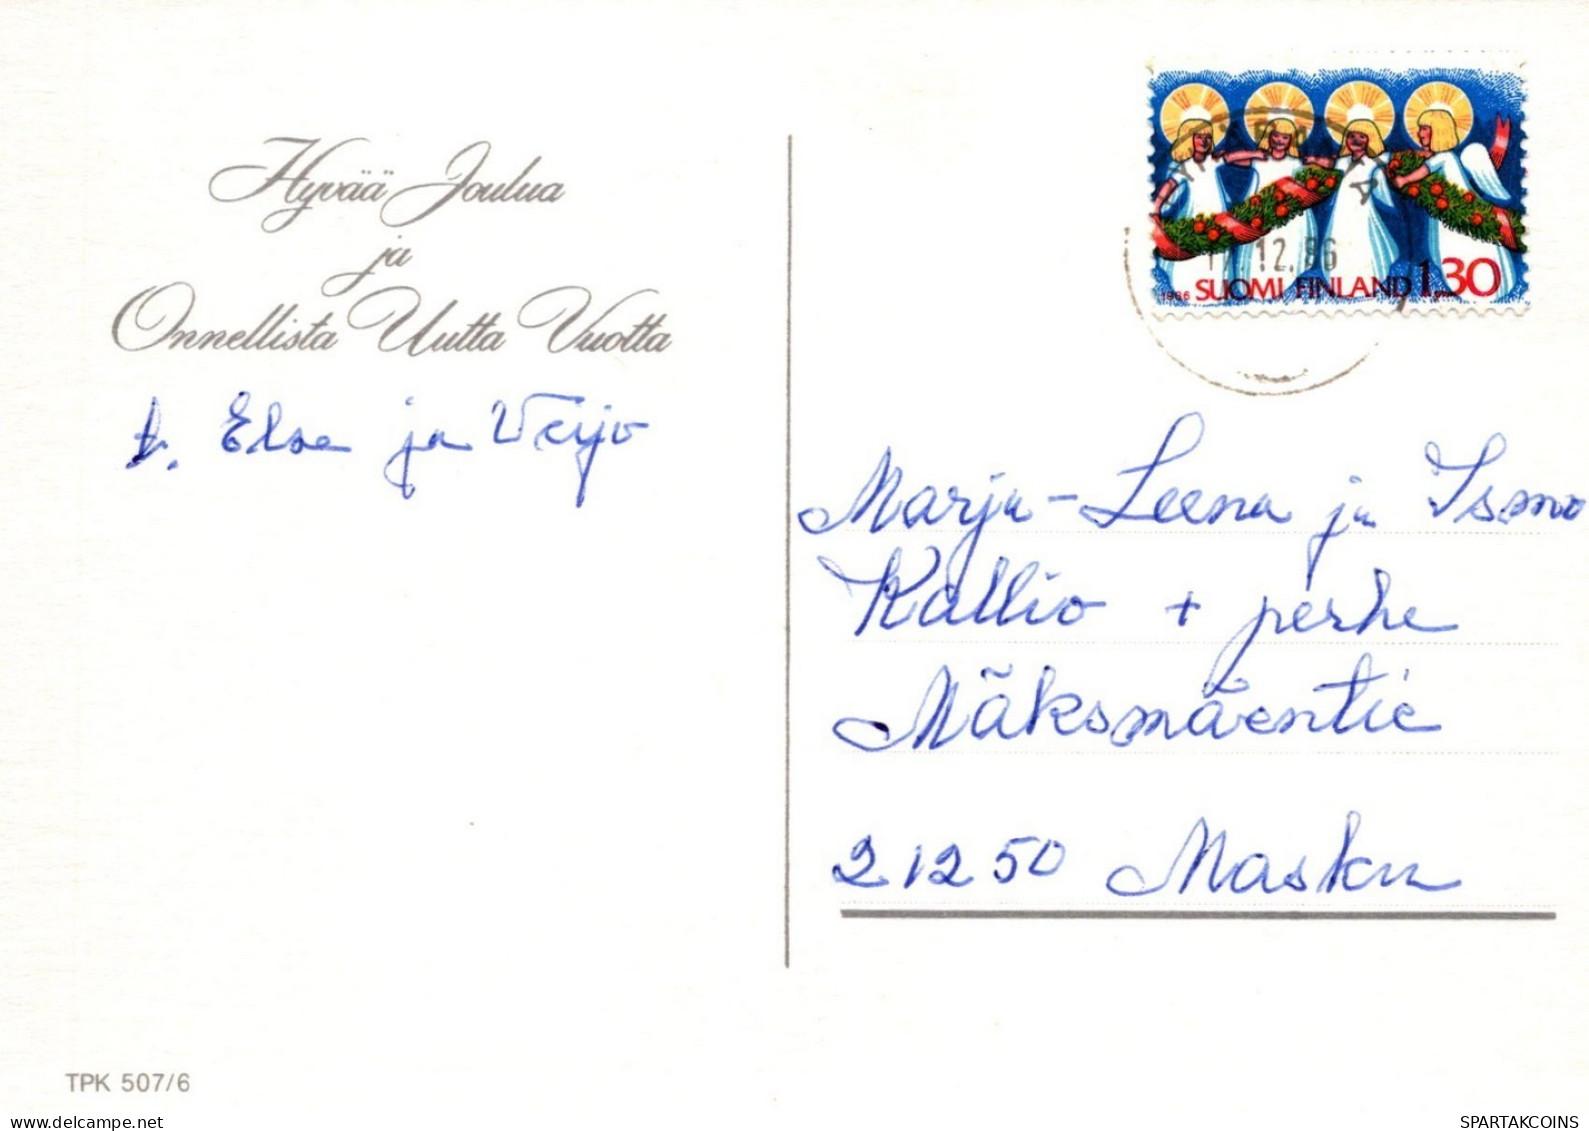 Hyvää Joulua
ja
Onnellista Uutta Vuotta
t. Else ja Veijo
1986 SUOMI FINLAND 1.30
12.86
Marju-Leena ja Ismo
Kallio + perhe
Mäksmäentie
21250 Masku
TPK 507/6
www.delcampe.net
SPARTAKCOINS